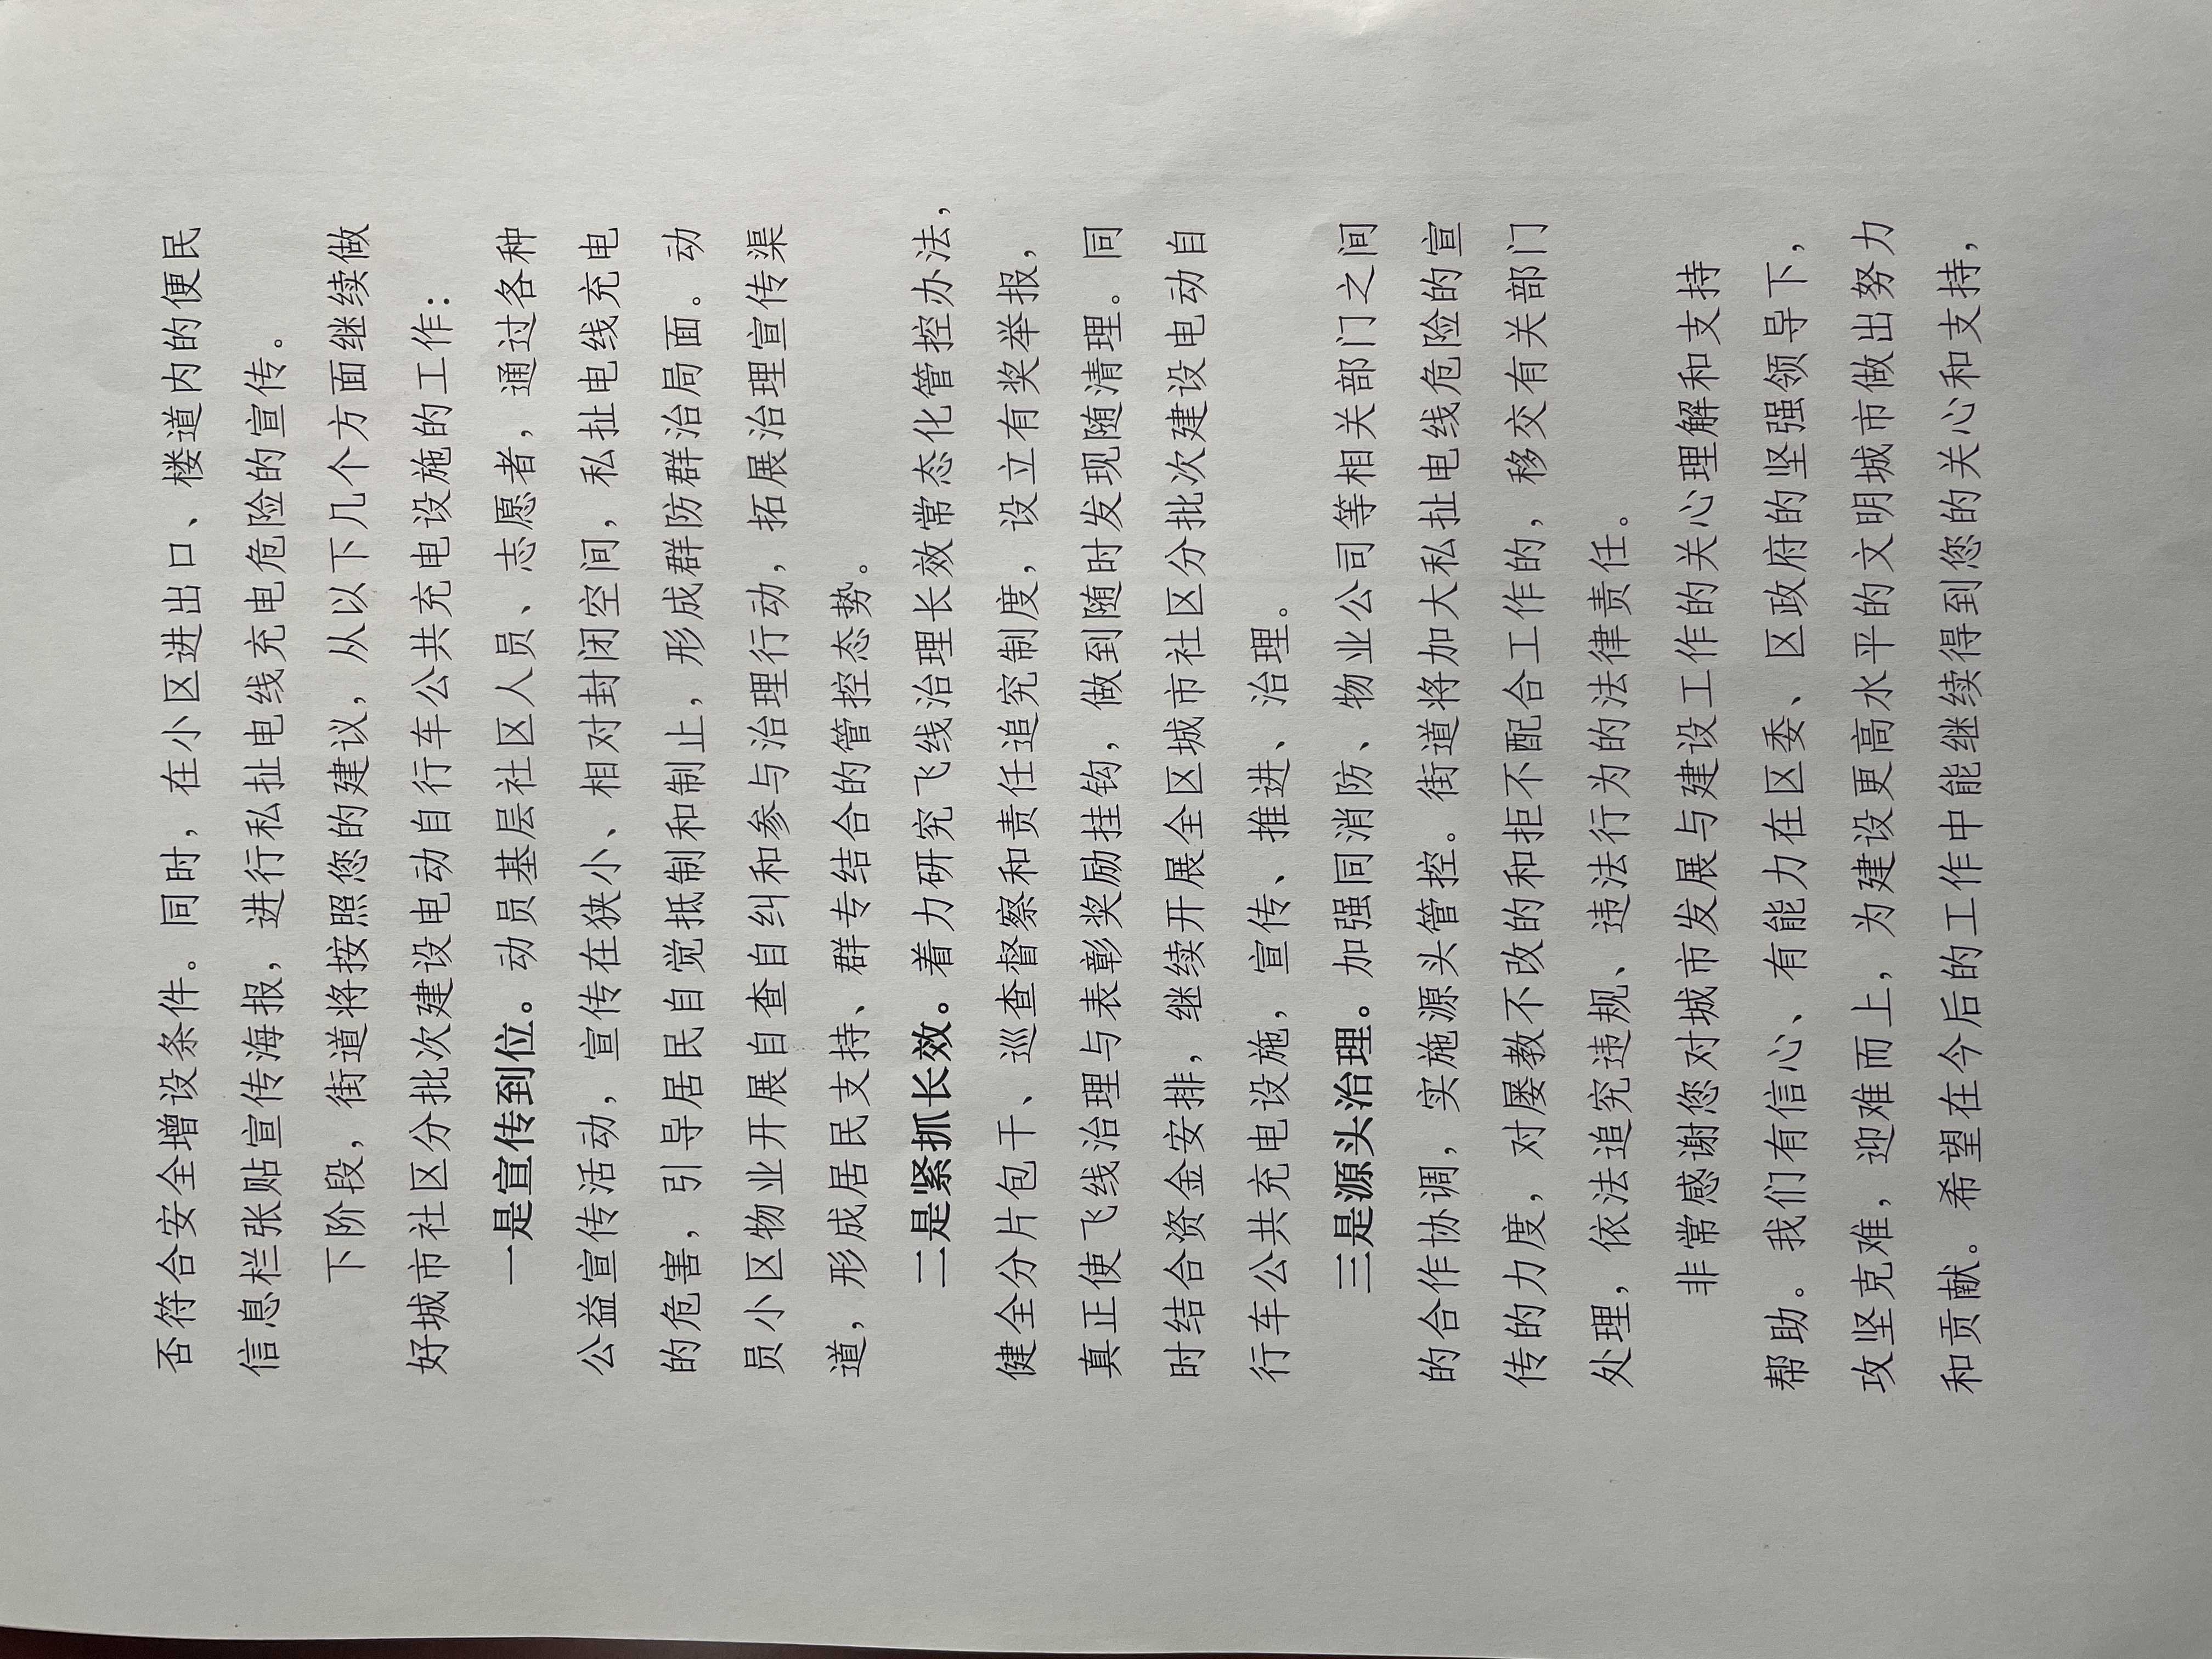 否符合安全增设条件。同时，在小区进出口、楼道内的便民
信息栏张贴宣传海报，进行私扯电线充电危险的宣传。
下阶段，街道将按照您的建议，从以下几个方面继续做
好城市社区分批次建设电动自行车公共充电设施的工作：
一是宣传到位。动员基层社区人员、志愿者，通过各种
公益宣传活动，宣传在狭小、相对封闭空间，私扯电线充电
的危害，引导居民自觉抵制和制止，形成群防群治局面。动
员小区物业开展自查自纠和参与治理行动，拓展治理宣传渠
道，形成居民支持、群专结合的管控态势。
二是紧抓长效。着力研究飞线治理长效常态化管控办法，
健全分片包干、巡查督察和责任追究制度，设立有奖举报，
真正使飞线治理与表彰奖励挂钩，做到随时发现随清理。同
时结合资金安排，继续开展全区城市社区分批次建设电动自
行车公共充电设施，宣传、推进、治理。
三是源头治理。加强同消防、物业公司等相关部门之间
的合作协调，实施源头管控。街道将加大私扯电线危险的宣
传的力度，对屡教不改的和拒不配合工作的，移交有关部门
处理，依法追究违规、违法行为的法律责任。
非常感谢您对城市发展与建设工作的关心理解和支持
帮助。我们有信心、有能力在区委、区政府的坚强领导下，
攻坚克难，迎难而上，为建设更高水平的文明城市做出努力
和贡献。希望在今后的工作中能继续得到您的关心和支持，